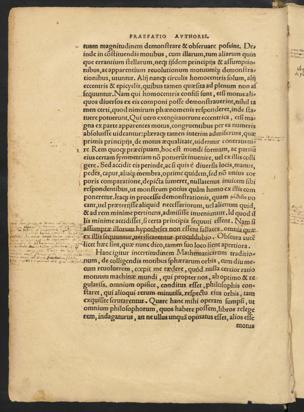 PRAEFATIO AVTHORIS.
tuam magnitudinem demonstrare & obseruare possint. De
inde in constituendis motibus, cum illarum, tum aliarum quin
que errantium stellarum, neqʒ ijsdem principijs & assumptio
nibus, ac apparentium reuolutionum motuumqʒ demonstra
tionibus, utuntur. Alij nanqʒ circulis homocentris solum, alij
eccentris & epicyclis, quibus tamen quæsita ad plenum non as
sequuntur. Nam qui homocentris confisi sunt, etsi motus ali-
quos diuersos ex eis componi posse demonstrauerint, nihil ta
men certi, quod nimirum phænomenis responderet, inde sta-
tuere potuerunt. Qui uero excogitauerunt eccentrica, etsi ma
gna ex parte apparentes motus, congruentibus per ea numeris
absoluisse uideantur: pleraqʒ tamen interim admiserunt, quæ
primis principijs, de motus æqualitate, uidentur contrauenire.
Rem quoqʒ præcipuam, hoc est mundi formam, ac partium
eius certam symmetriam nō potuerūt inuenire, uel ex illis colli
gere. Sed accidit eis perinde, ac si quis è diuersis locis, manus,
pedes, caput, aliaqʒ membra, optime quidem, sed nō unius cor
poris comparatione, depicta sumeret, nullatenus inuicem sibi
respondentibus, ut monstrum potius quàm homo ex illis com
poneretur. Itaqʒ in processu demonstrationis, quam μέθοδον uo
cant, uel præterijsse aliquid necessariorum, uel alienum quid,
& ad rem minime pertinens, admisisse inueniuntur. Id quod il
lis minime accidisset, si certa principia sequuti essent. Nam si
assumptæ illorum hypotheses non essent fallaces, omnia quæ
ex illis sequuntur, uerificarentur proculdubio. Obscura autē
licet hæc sint, quæ nunc dico, tamen suo loco fient apertiora.
Hanc igitur incertitudinem Mathematicarum traditio-
num, de colligendis motibus sphærarum orbis, cum diu me-
cum reuoluerem, cœpit me tædere, quòd nulla certior ratio
motuum machinæ mundi, qui propter nos, ab optimo & re
gularissimo omnium opifice, conditus esset, philosophis con-
staret, qui alioqui rerum minutissimarum, respectu eius orbis, tam
exquisite scrutarentur. Quare hanc mihi operam sumpsi, ut
omnium philosophorum, quos habere possem, libros relege
rem, indagaturus, an ne ullus unquā opinatus esset, alios esse
motus